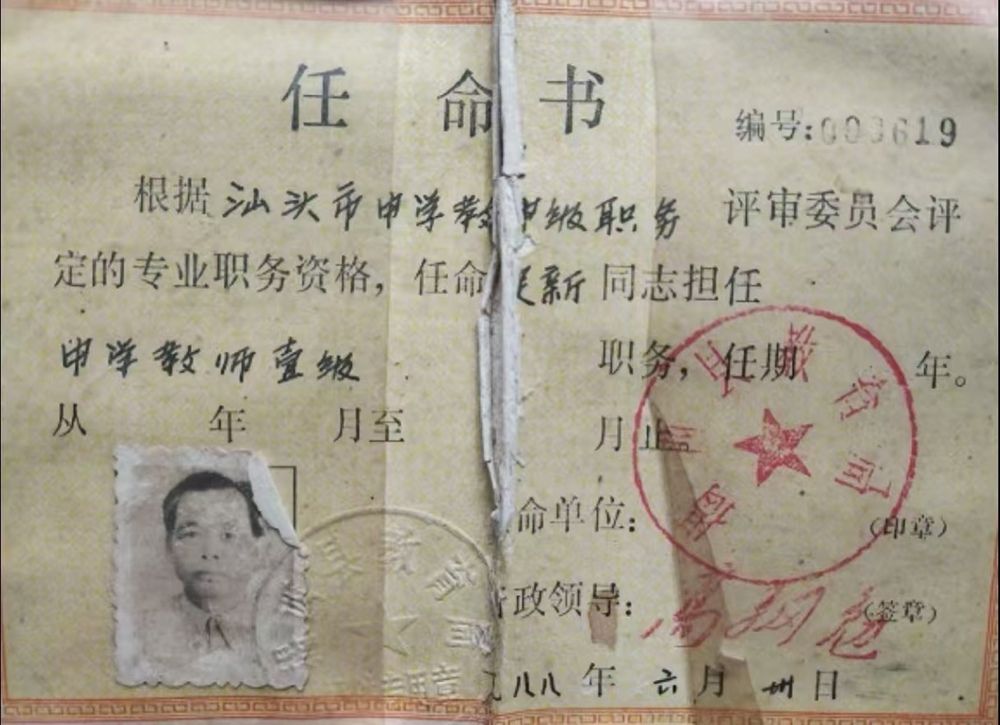 任命书
编号:003619
根据汕头市中学教中级职务评审委员会评
定的专业职务资格，任命新同志担任
中学教师壹级职务，任期年。
从年月至月止。
命单位：（印章）
政领导：（签章）
八八年六月卅日
县教育局
教育局